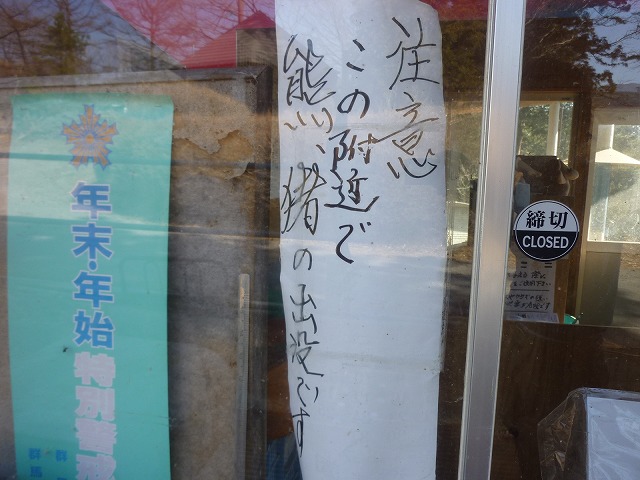 注意
この附近で
熊、猪の出没です
年末・年始
特別警戒
群馬
締切
CLOSED